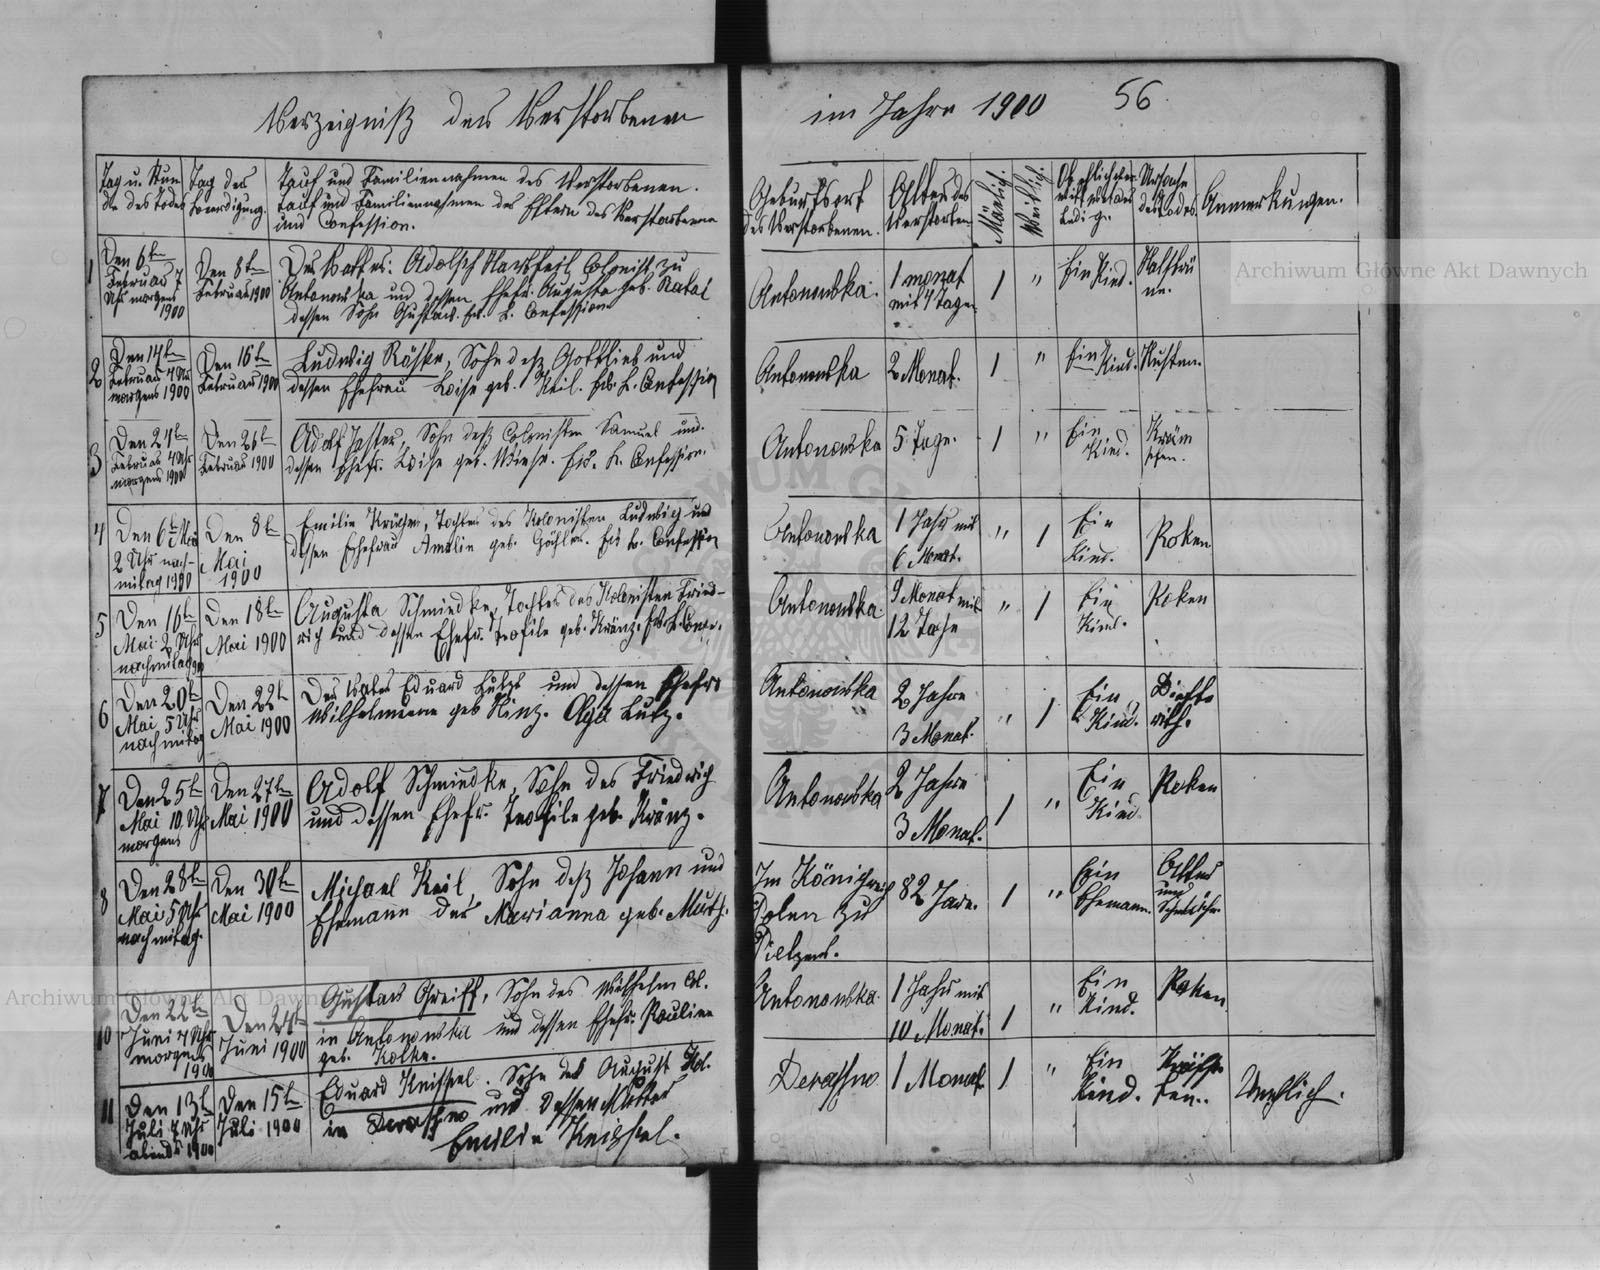 Verzeigniß der Verstorbenen im Jahre 1900 56.
Tag u. Stun
de des Todes
Tag der
Beerdigung.
Tauf und Familiennahmen des Verstorbenen.
Tauf und Familiennahmen der Eltern des Verstorbenen
und Confession.
Geburtsort
des Verstorbenen.
Alter des
Verstorben.
Mänlich.
Weiblich.
Ob ehlich oder
ledig.
Ursache
des Todes
Anmerkungen.
1
Den 6ten
Februar 7
Uhr morgens
1900
Den 8ten
Februar 1900
Der Vatter: Adolf Colonist zu
Antonowka und dessen Ehefr. Augusta geb. Ratai
dessen Sohn Gustav. Ev. L. Confession
Antonowka.
1 monat
mit 4 tagen
1
"
Ein Kind.
2
Den 14ten
Februar 4 Uhr
morgens 1900
Den 16ten
Februar 1900
Ludwig Röske, Sohn deß Gottlieb und
dessen Ehefrau Loise geb. Keil. Ev. L. Confession
Antonowka
2 Monat.
1
"
Ein
Kind.
Husten.
3
Den 24ten
Februar 4 Uhr
morgens 1900
Den 26ten
Februar 1900
Adolf Jester, Sohn deß Colonisten Samuel und.
dessen Ehefr. Loise geb. Ev. L. Confession.
Antonowka
5 Tage.
1
"
Ein
Kind.
Kräm
pfen.
4
Den 6ten Mai
2 Uhr nach-
mitag 1900
Den 8ten
Mai
1900
Emilie Tochter des Kolonisten Ludwig und
dessen Ehefrau Amalie geb. Ev. L. Confession
Antonowka
1 Jahr mit
6 Monat.
"
1
Ein
Kind.
Poken
5
Den 16ten
Mai 2 Uhr
nachmitag
Den 18ten
Mai 1900
Augusta Schmiedke, Tochter des Kolonisten Fried-
rich und dessen Ehefr. Teofile geb. Kränz. Ev. L. Confe.
Antonowka.
9 Monat mit
12 Tage
"
1
Ein
Kind.
Poken
6
Den 20ten
Mai 5 Uhr
nachmitag
Den 22ten
Mai 1900
Der Vater Eduard Lutz und dessen Ehefr.
Wilhelmine geb Hinz. Olga Lutz.
Antonowka
2 Jahre
3 Monat.
"
1
Ein
Kind.
Diefte
rith.
7
Den 25ten
Mai 10 Uhr
morgens
Den 27ten
Mai 1900
Adolf Schmiedke, Sohn des Friedrich
und dessen Ehefr. Teofile geb. Kränz.
Antonowka
2 Jahre
3 Monat.
1
"
Ein
Kind.
Poken
8
Den 28ten
Mai 5 Uhr
nachmitag.
Den 30ten
Mai 1900
Michael Keil, Sohn deß Johann und
Ehemann der Marianna geb. Muth.
Im Königreich
Polen zu
82 Jare.
1
"
Ein
Ehemann.
Alter
und
10
Den 22ten
Juni 7 Uhr
morgens
1900
Den 24ten
Juni 1900
Gustav Greiff, Sohn des Wilhelm Col.
in Antonowka und dessen Ehefr. Pauline
geb. Kolke.
Antonowka.
1 Jahr mit
10 Monat.
1
"
Ein
Kind.
Poken
11
Den 13ten
Juli 7 Uhr
abends 1900
Den 15ten
Juli 1900
Eduard Knissel. Sohn des August Kol.
in Deraschno und dessen Mutter
Emilie Knissel.
Deraschno
1 Monat
1
"
Ein
Kind.
Archiwum Główne Akt Dawnych
Archiwum Główne Akt Dawnych